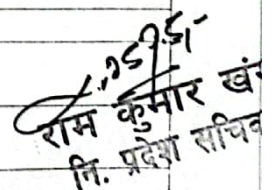 राम कुमार खं
नि. प्रदेश सचिव